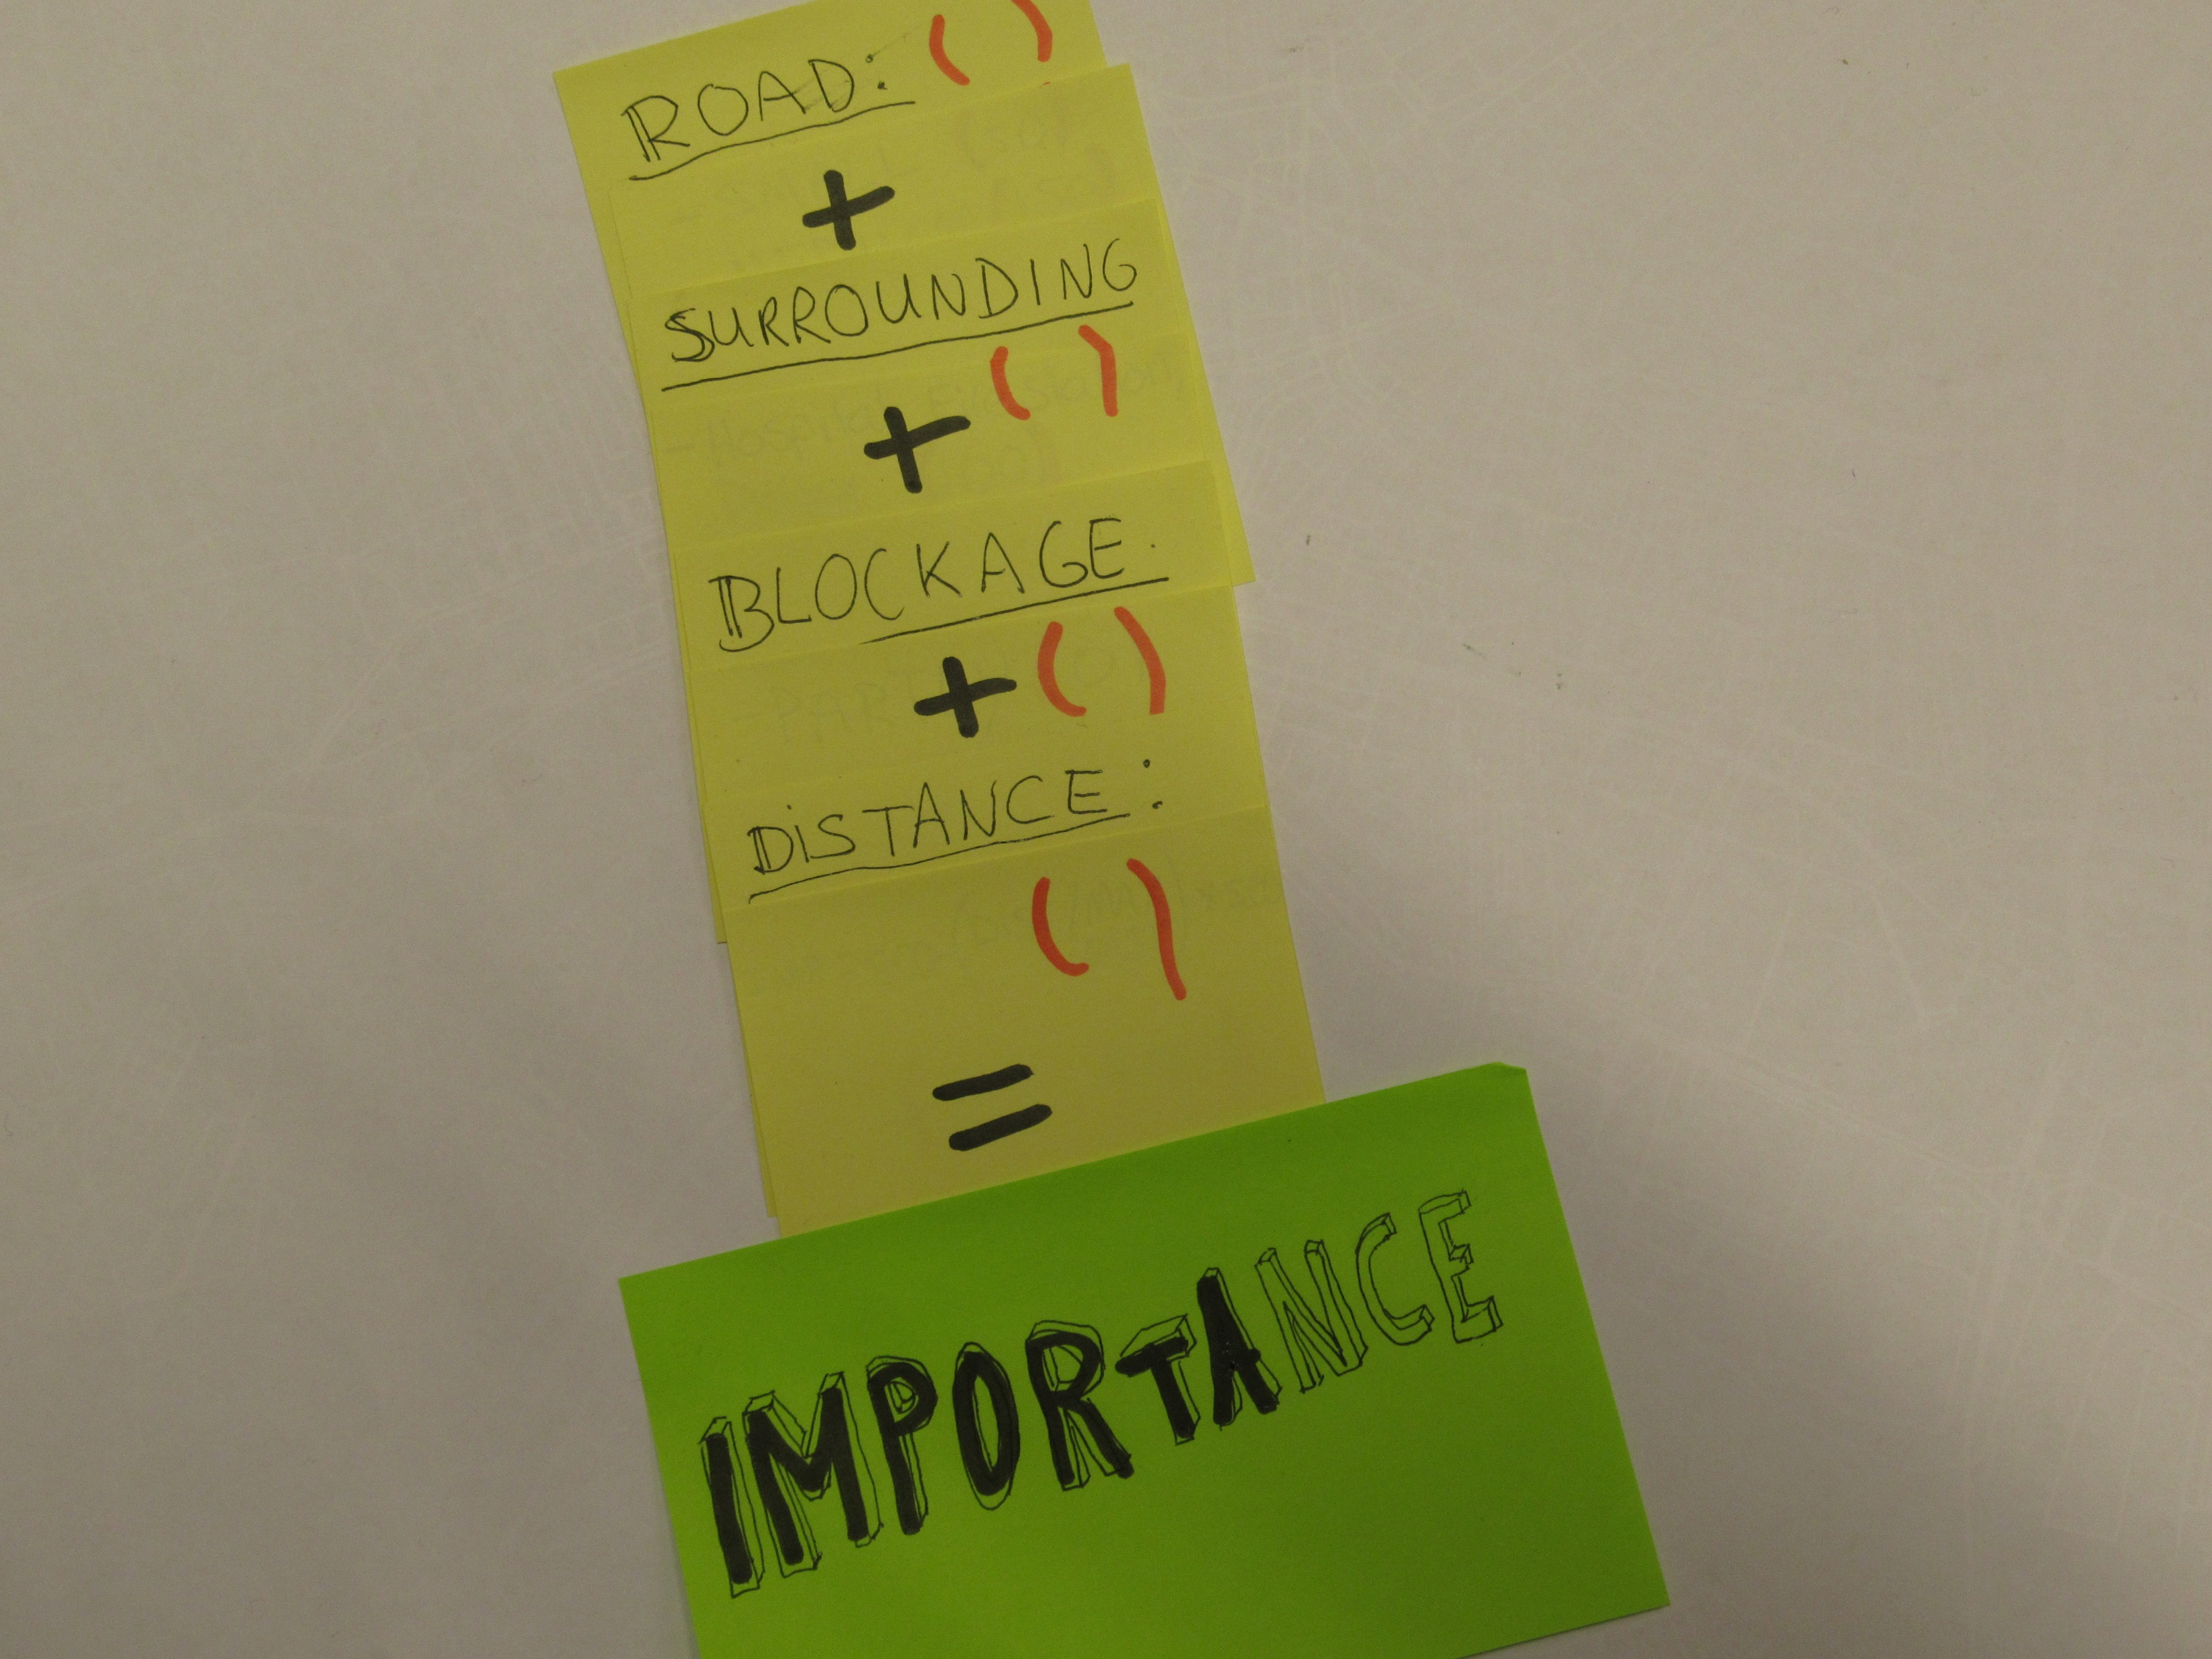 ROAD: ( )
+
SURROUNDING
+ ( )
BLOCKAGE.
+ ( )
DISTANCE:
( )
=
IMPORTANCE